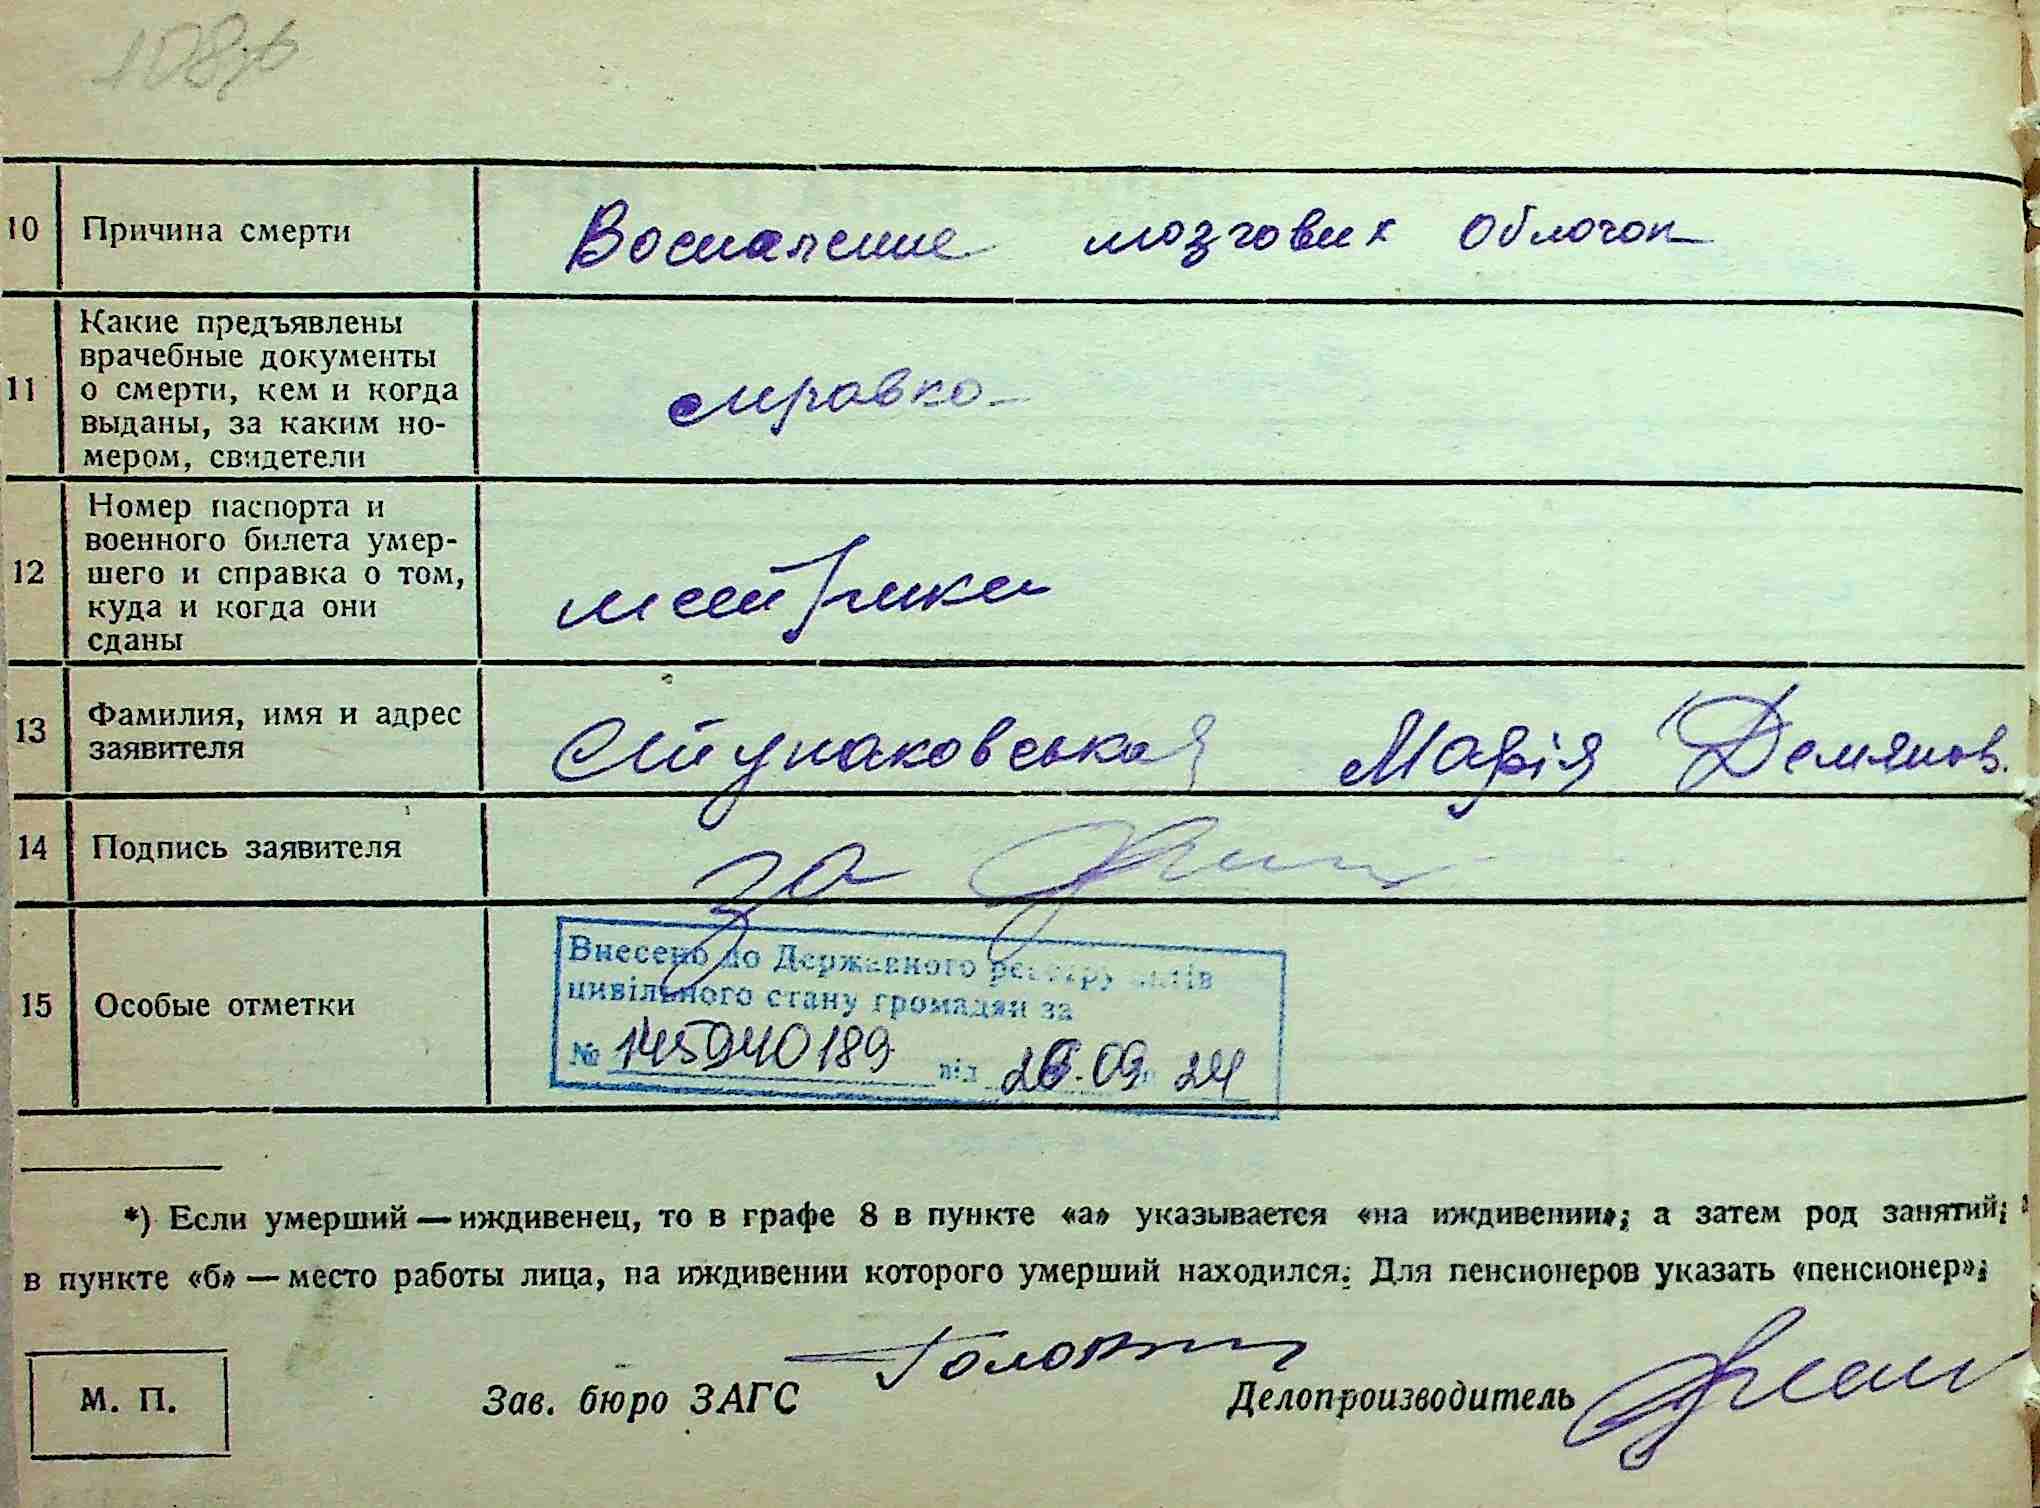 10 Причина смерти Воспаление мозгових облочок
11 Какие предъявлены
врачебные документы
о смерти, кем и когда
выданы, за каким но-
мером, свидетели
справка
12 Номер паспорта и
военного билета умер-
шего и справка о том,
куда и когда они
сданы
метрика
13 Фамилия, имя и адрес
заявителя
Ступаковська Марія Демянов.
14 Подпись заявителя за
15 Особые отметки
Внесено до Державного реєстру актів
цивільного стану громадян за
№ 145940189 від 26.09 24
*) Если умерший — иждивенец, то в графе 8 в пункте «а» указывается «на иждивении»; а затем род занятий;
в пункте «б» — место работы лица, на иждивении которого умерший находился. Для пенсионеров указать «пенсионер»;
М. П. Зав. бюро ЗАГС Делопроизводитель